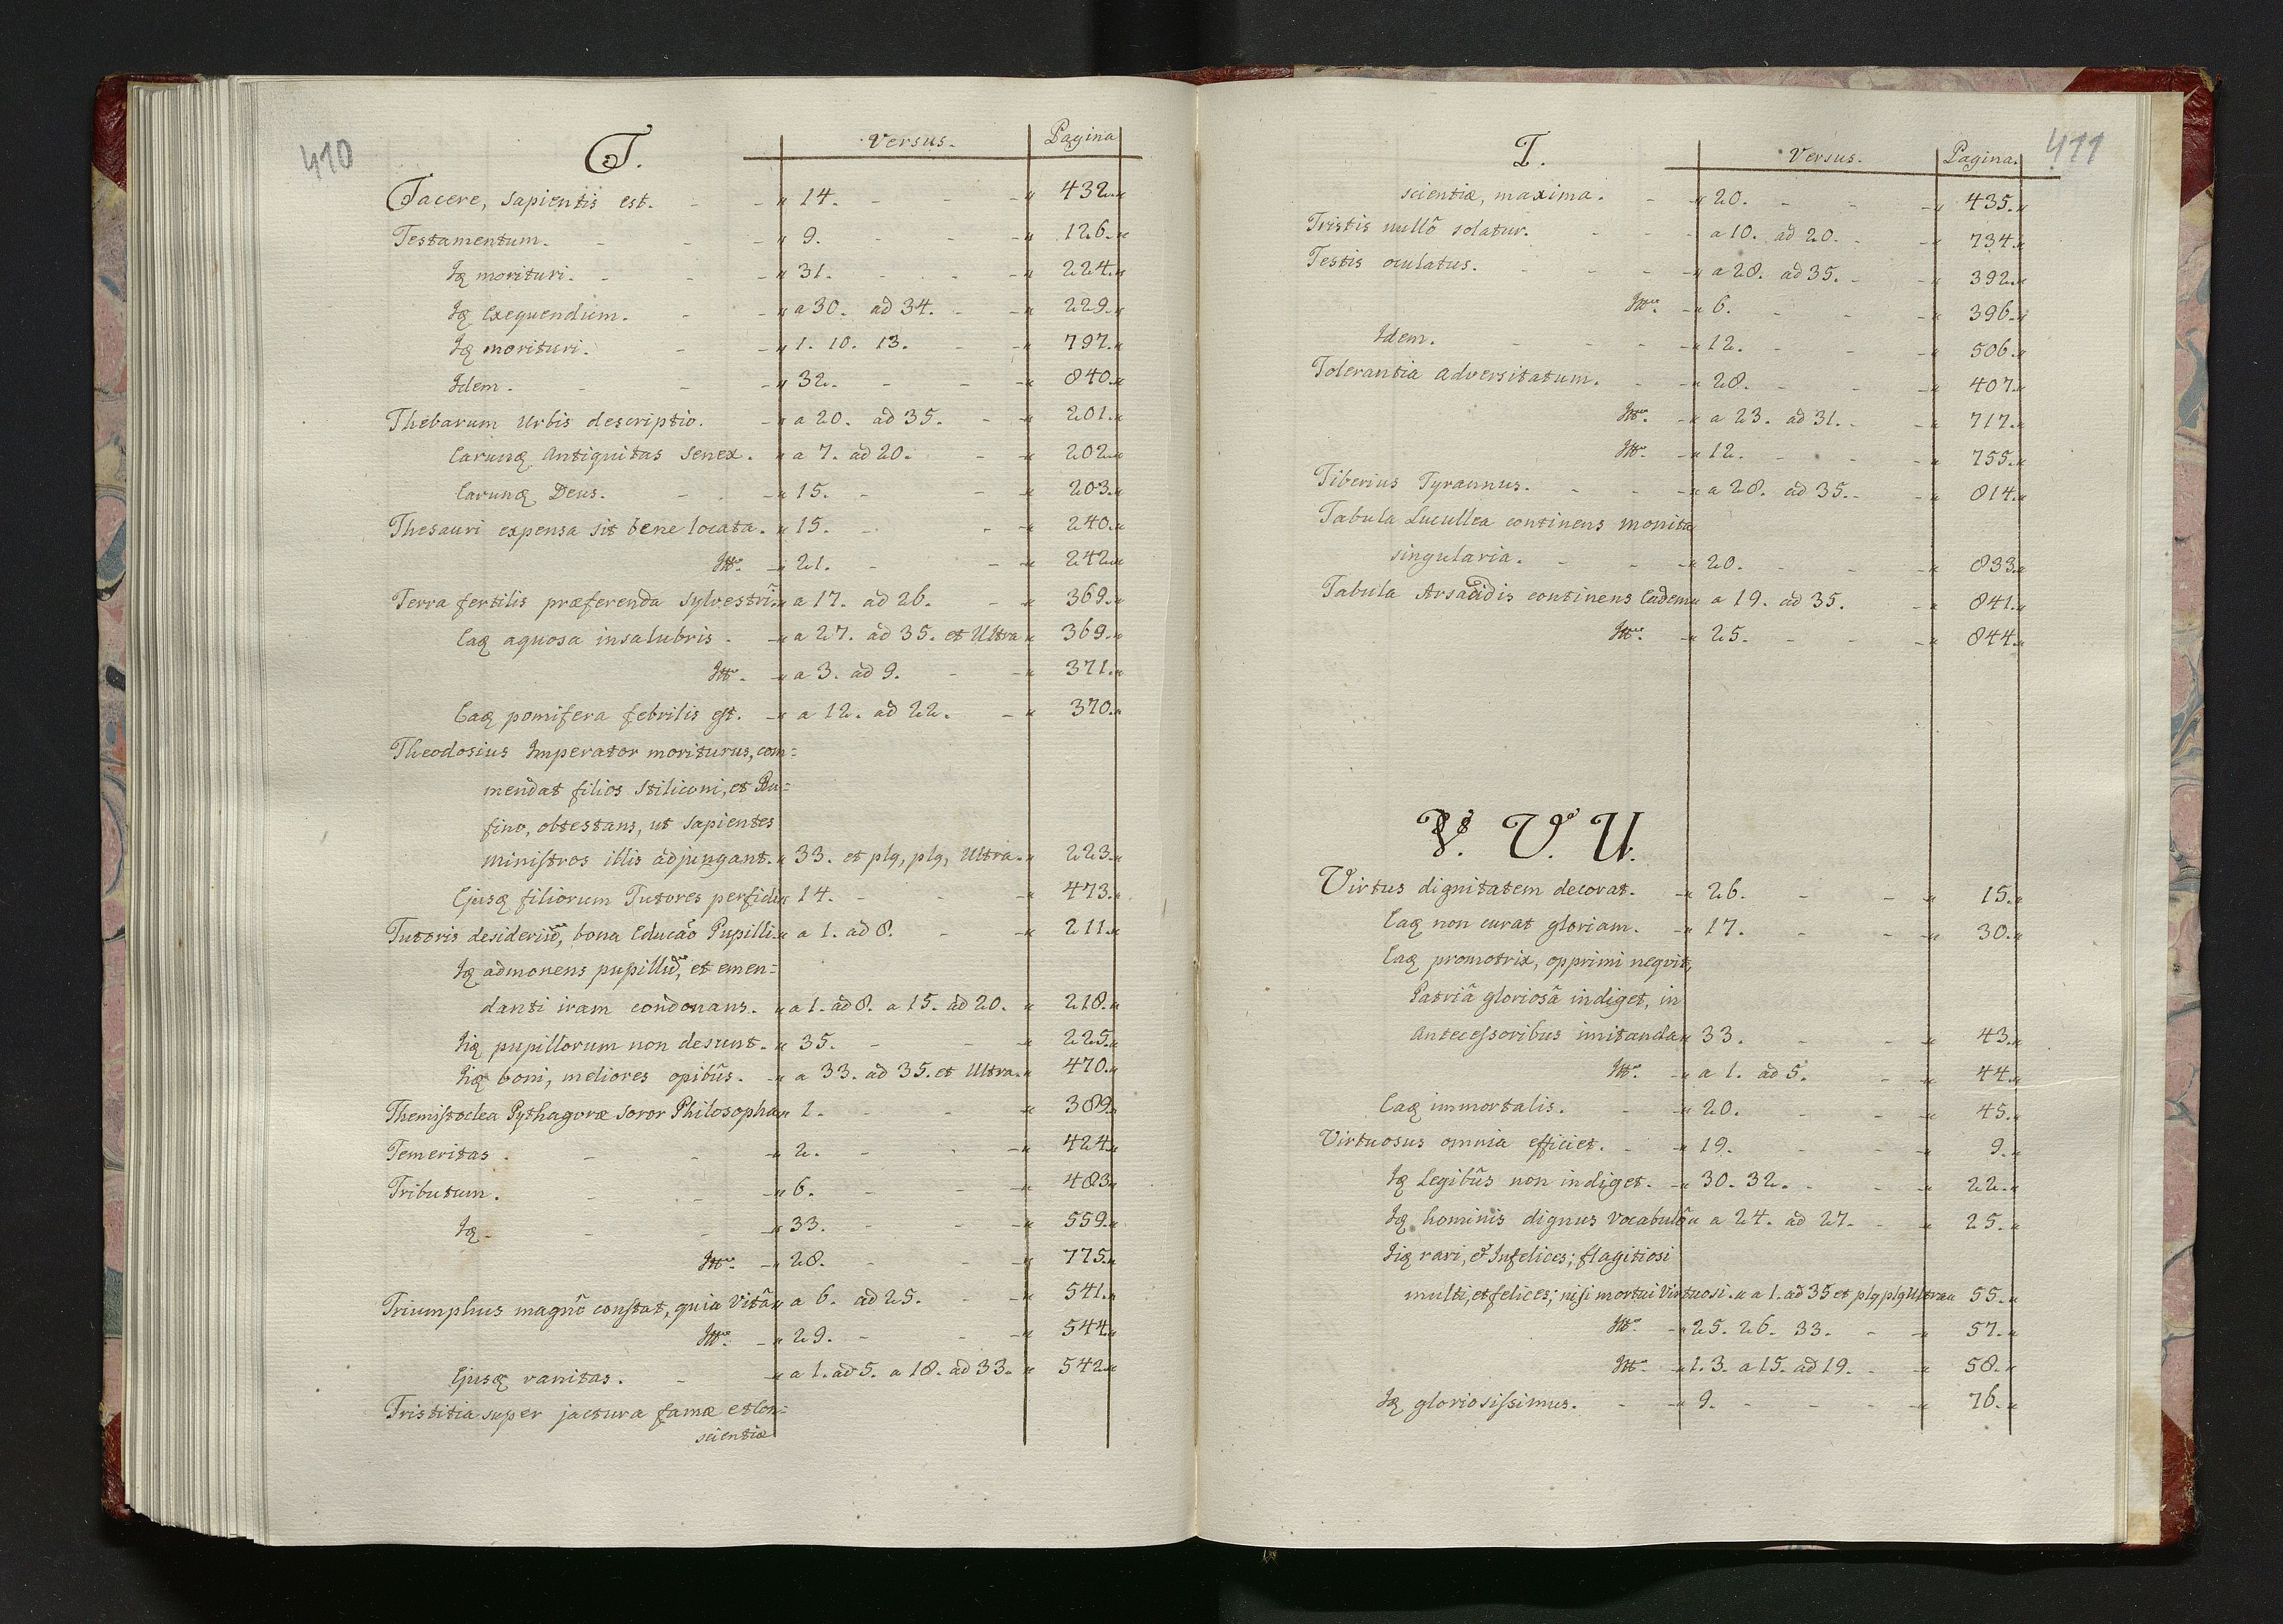 410
T. Versus. Pagina
Tacere, sapientis est. - - „ 14. - - - „ 432. „
Testamentum. - - - „ 9. - - - „ 126. „
Iq morituri. - - - „ 31. - - - „ 224. „
Iq Exequendum. - - „ a 30. ad 34. - - „ 229. „
Iq morituri. - - „ 1. 10. 13. - - „ 797. „
Idem. - - - „ 32. - - - „ 840. „
Thebarum Urbis descriptio. - „ a 20. ad 35. - „ 201. „
Earunq Antiquitas Senex. „ a 7. ad 20. - - „ 202. „
Earunq Deus. - - - „ 15. - - „ 203. „
Thesauri expensa sit bene locata. „ 15. - - „ 240. „
Itt. - „ 21. - - „ 242. „
Terra fertilis præferenda sylvestri. „ a 17. ad 26. - „ 369. „
Eaq aquosa insalubris. - „ a 27. ad 35. et Ultra „ 369. „
Itt. - „ a 3. ad 9. - - „ 371. „
Eaq pomifera febrilis est. - „ a 12. ad 22. - „ 370. „
Theodosius Imperator moriturus, com=
mendat filios Stiliconi, et Ru=
fino, obtestans, ut sapientes
ministros illis adjungant. „ 33. et plq, plq, Ultra. „ 223. „
Ejusq filiorum Tutores perfidi „ 14. - - - „ 473. „
Tutoris desideriu͠, bona Educao͠ Pupilli. „ a 1. ad 8. - - „ 211. „
Iq admonens pupillu͠, et emen=
danti iram condonans. „ a 1. ad 8. a 15. ad 20. „ 218. „
Iiq pupillorum non desunt. „ 35. - - - „ 225. „
Iiq boni, meliores opibûs. - „ a 33. ad 35. et Ultra. „ 470. „
Themistoclea Pythagoræ soror Philosopha „ 1. - - - „ 389. „
Temeritas. - - - „ 2. - - - „ 424. „
Tributum. - - - „ 6. - - - „ 483. „
Iq - - - „ 33. - - - „ 559. „
Itt. - „ 28. - - - „ 775. „
Triumphus magnô constat, quia Vitâ „ a 6. ad 25. - - „ 541. „
Itt. - „ 29. - - - „ 544. „
Ejusq vanitas. - - „ a 1. ad 5. a 18. ad 33. „ 542. „
Tristitia super jactura famæ et Con=
scientiæ
411
T. Versus. Pagina.
scientiæ, maxima. - - „ 20. - - - „ 435. „
Tristis nullô solatur. - - - a 10. ad 20. - - „ 734. „
Testis oculatus. - - - „ a 28. ad 35. - - „ 392. „
Itt. - „ 6. - - - „ 396. „
Idem. - - - „ 12. - - - „ 506. „
Tolerantia Adversitatum. - - „ 28. - - - „ 407. „
Itt. - „ a 23. ad 31. - - „ 717. „
Itt. - „ 12. - - - „ 755. „
Tiberius Tyrannus. - - - „ a 28. ad 35. - - „ 814. „
Tabula Lucullea continens monita
singularia. - - - „ 20. - - - „ 833. „
Tabula Arsacidis continens Eadem „ a 19. ad 35. - „ 841. „
Itt. - „ 25. - - - „ 844. „
V. V. U.
Virtus dignitatem decorat. - „ 26. - - „ 15. „
Eaq non curat gloriam. - „ 17. - - „ 30. „
Eaq promotrix, opprimi nequit,
Patriâ gloriosâ indiget, in
Antecessoribus imitanda „ 33. - - „ 43. „
Itt. - „ a 1. ad 5. - - „ 44. „
Eaq immortalis. - - „ 20. - - - „ 45. „
Virtuosus omnia efficiet. - - „ 19. - - - „ 9. „
Iq Legibûs non indiget. - „ 30. 32. - - „ 22. „
Iq hominis dignus Vocabulô „ a 24. ad 27. - „ 25. „
Iiq rari, et Infelices; flagitiosi
multi, et felices; nisi mortui Virtuosi. „ a 1. ad 35 et plq plq Ultra „ 55. „
Itt. - „ 25. 26. 33. - - „ 57. „
Itt. - „ 1. 3. a 15. ad 19. - - „ 58. „
Iq gloriosissimus. - - „ 9. - - - „ 76. „